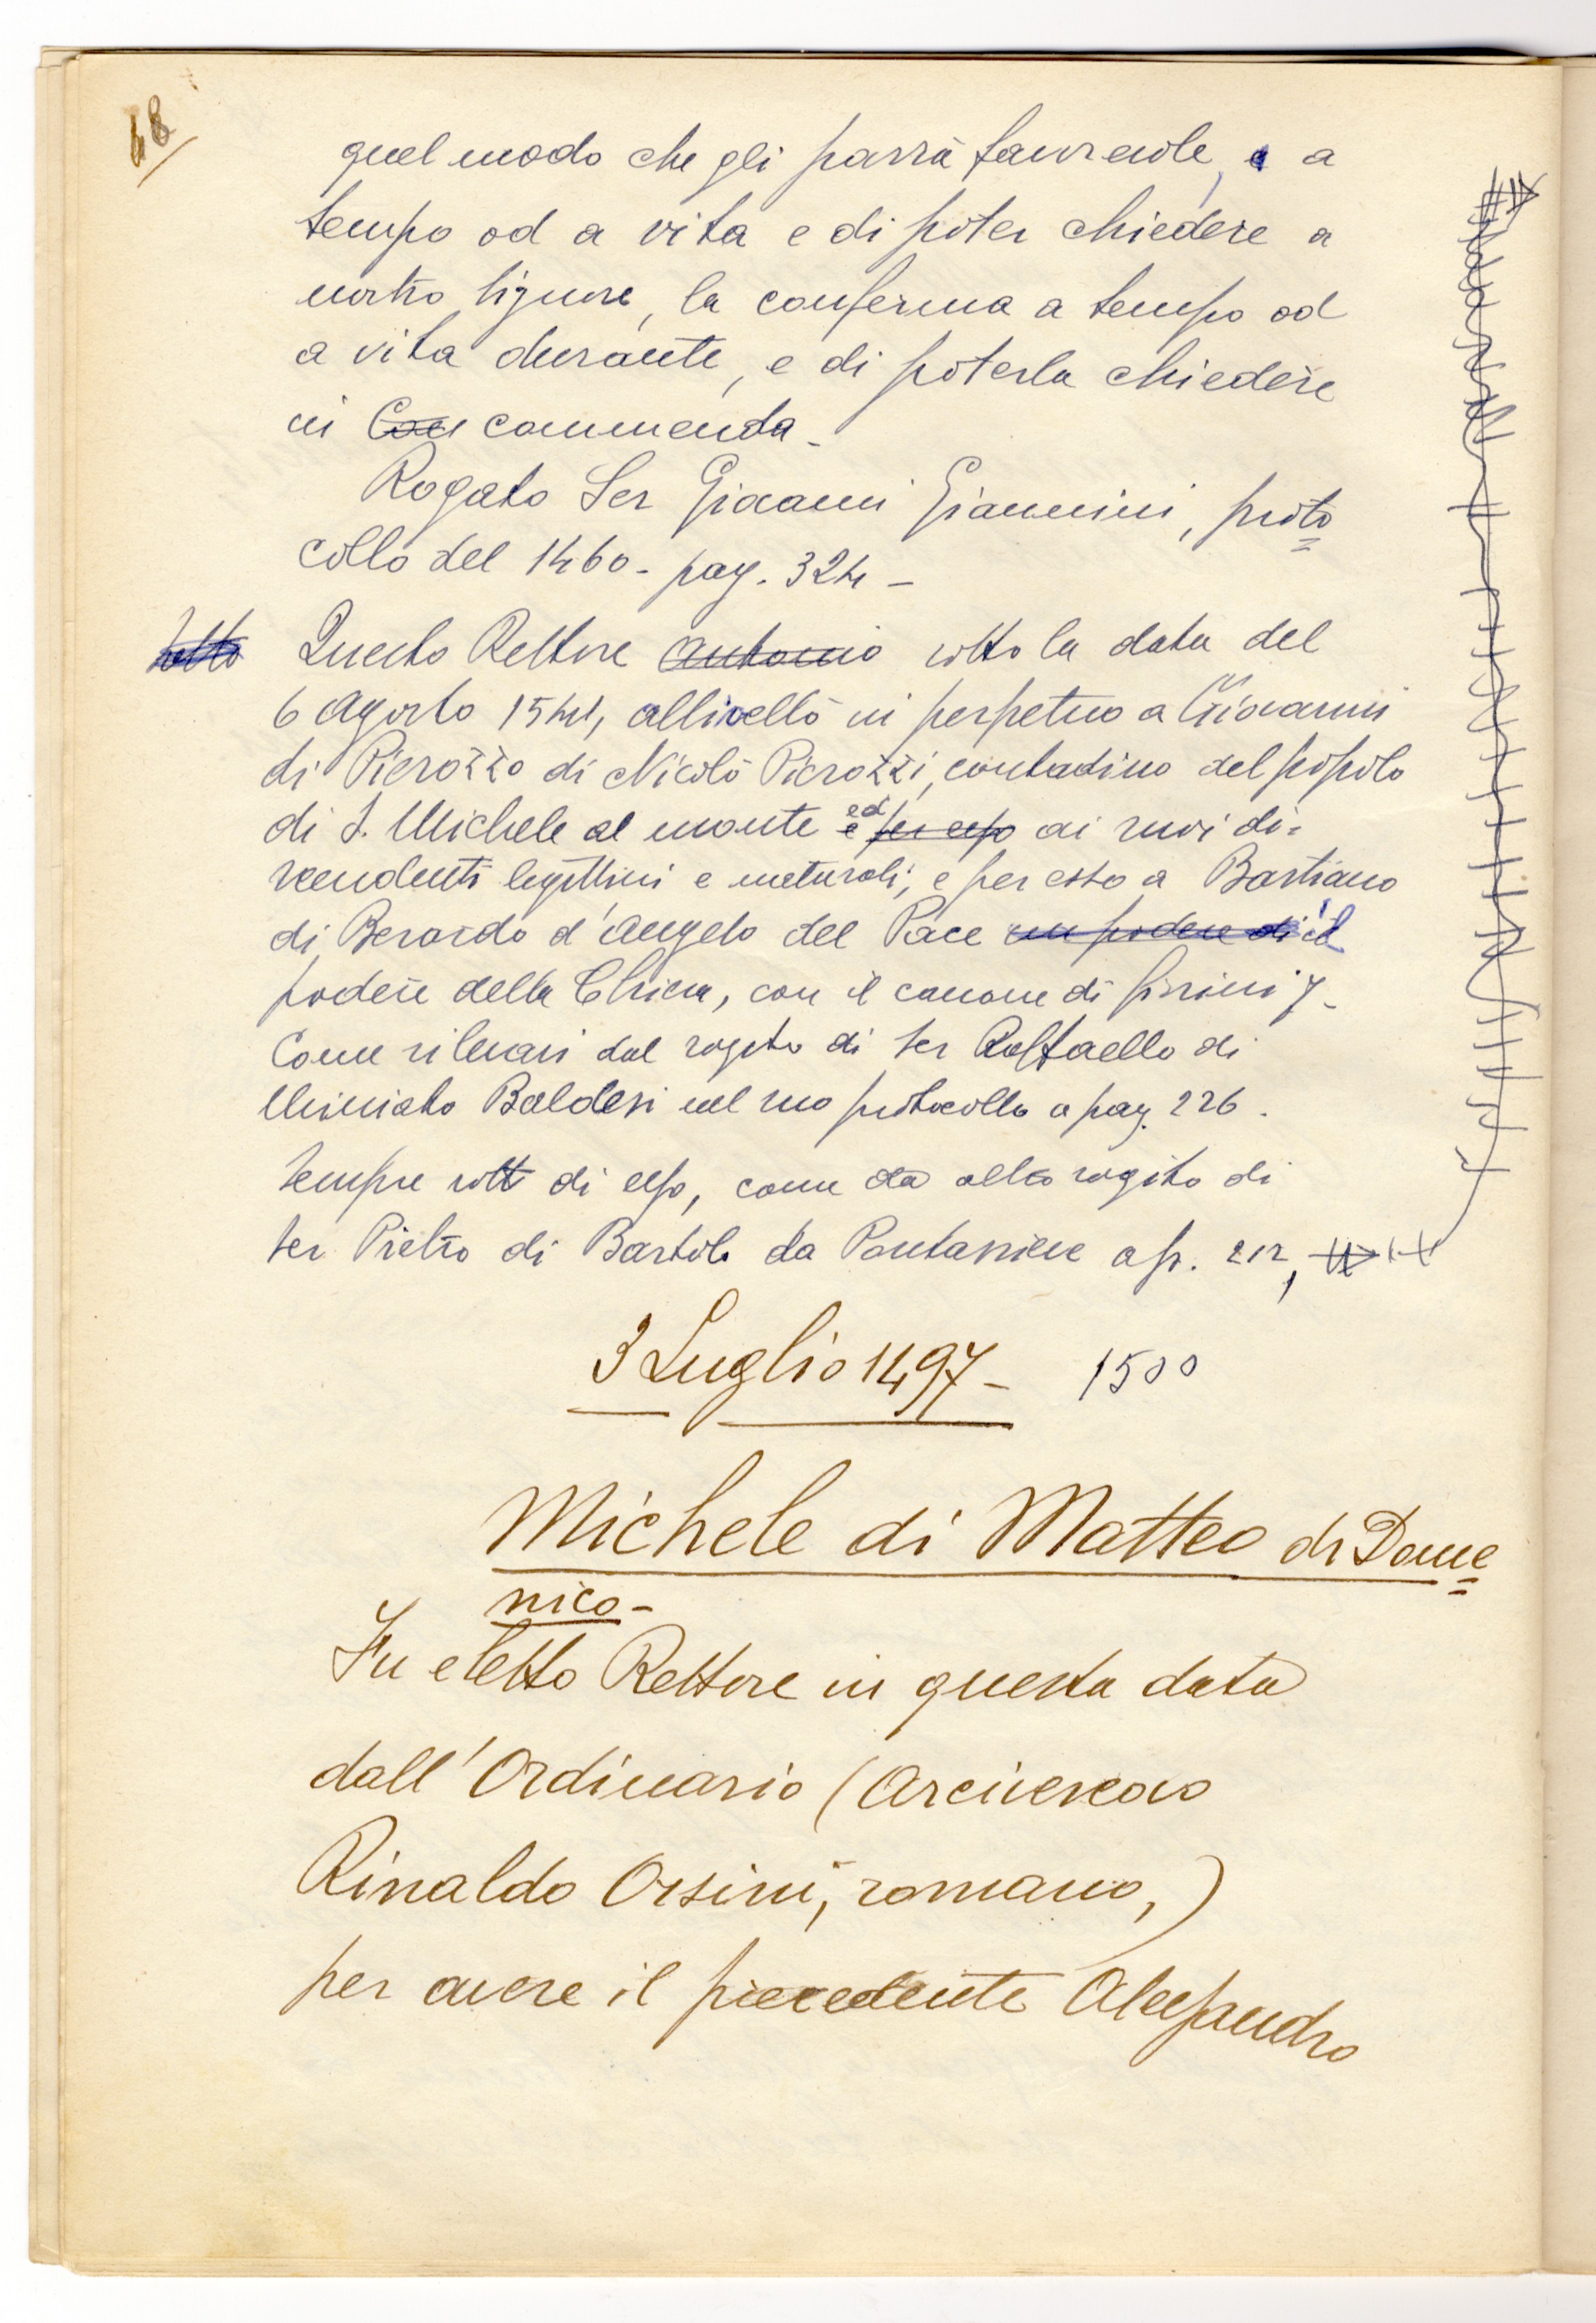 68
quel modo che gli parrà favorevole, a
tempo od a vita e di poter chiedere a
nostro Signore, la conferma a tempo od
a vita durante, e di poterla chiedere
in Con commenda -
Rogato Ser Giovanni Giannini, proto
collo del 1460 - pag. 324 -
sotto Questo Rettore Antonio sotto la data del
6 Agosto 1541, allivellò in perpetuo a Giovanni
di Pierozzo di Nicolò Pierozzi, contadino del popolo
di S. Michele al monte e ed per esso ai suoi di=
scendenti legittimi e naturali, e per esso a Bastiano
di Berardo d'Angelo del Pace un podere di il
podere della Chiesa, con il canone di fiorini 7 -
Come rilevasi dal rogito di ser Raffaello di
Miniato Baldesi nel suo protocollo a pag. 226.
Sempre sott di esso, come da altro rogito di
ser Pietro di Bartolo da Pontassieve a p. 212,
3 Luglio 1497 - 1500
Michele di Matteo di Dome
nico -
Fu eletto Rettore in questa data
dall'Ordinario (Arcivescovo
Rinaldo Orsini, romano,)
per avere il precedente Alessandro